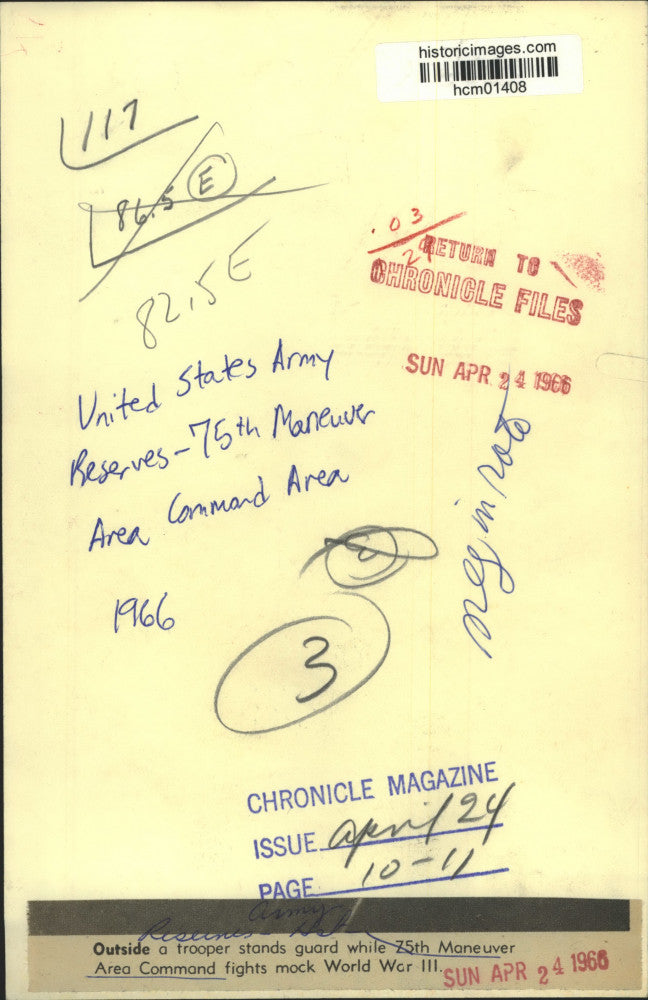 historicimages.com
hcm01408
117
86.5 E
82.5 E
.03
29
RETURN TO
CHRONICLE FILES
SUN APR 24 1966
United States Army
Reserves-75th Maneuver
Area Command Area
1966
neg in roto
2
3
CHRONICLE MAGAZINE
ISSUE April 24
PAGE 10-11
Army
Reserves
Outside a trooper stands guard while 75th Maneuver
Area Command fights mock World War III.
SUN APR 24 1966